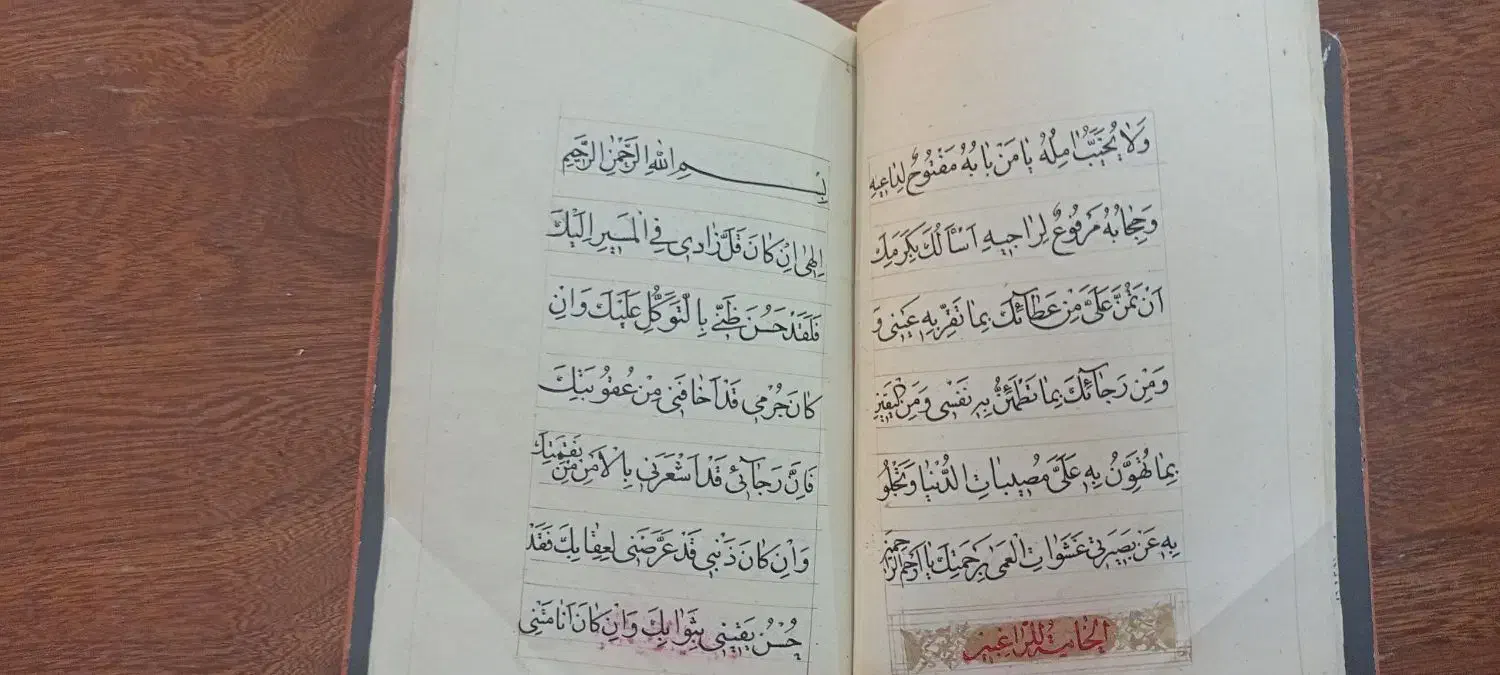 وَلَا يُخَيَّبُ اٰمِلُهُ يٰا مَنْ بٰابُهُ مَفْتُوحٌ لِدٰاعِيهِ
وَحِجٰابُهُ مَرْفُوعٌ لِرٰاجِيهِ اَسْأَلُكَ بِكَرَمِكَ
اَنْ تَمُنَّ عَلَيَّ مِنْ عَطٰآئِكَ بِمٰا تَقِرُّ بِهِ عَيْنى وَ
وَمِنْ رَجٰآئِكَ بِمٰا تَطْمَئِنُّ بِهِ نَفْسى وَمِنَ الْيَقينِ
بِمٰا تُهَوِّنُ بِهِ عَلَيَّ مُصيبٰاتِ الدُّنْيٰا وَتَجْلُو
بِهِ عَنْ بَصيرَتى غَشَوٰاتِ الْعَمٰى بِرَحْمَتِكَ يٰا اَرْحَمَ الرّٰاحِمينَ
الخٰامِسَة لِلرّٰاغِبينَ
بِسْمِ اللّٰهِ الرَّحْمٰنِ الرَّحيمِ
اِلٰهى اِنْ كٰانَ قَلَّ زٰادى فِى الْمَسيرِ اِلَيْكَ
فَلَقَدْ حَسُنَ ظَنّى بِالتَّوَكُّلِ عَلَيْكَ وَاِنْ
كٰانَ جُرْمى قَدْ اَخٰافَنى مِنْ عُقُوبَتِكَ
فَاِنَّ رَجٰائى قَدْ اَشْعَرَنى بِالْاَمْنِ مِنْ نِقْمَتِكَ
وَاِنْ كٰانَ ذَنْبى قَدْ عَرَّضَنى لِعِقٰابِكَ فَقَدْ
حُسْنُ يَقينى بِثَوٰابِكَ وَاِنْ كٰانَ اَنٰامَتْنِى